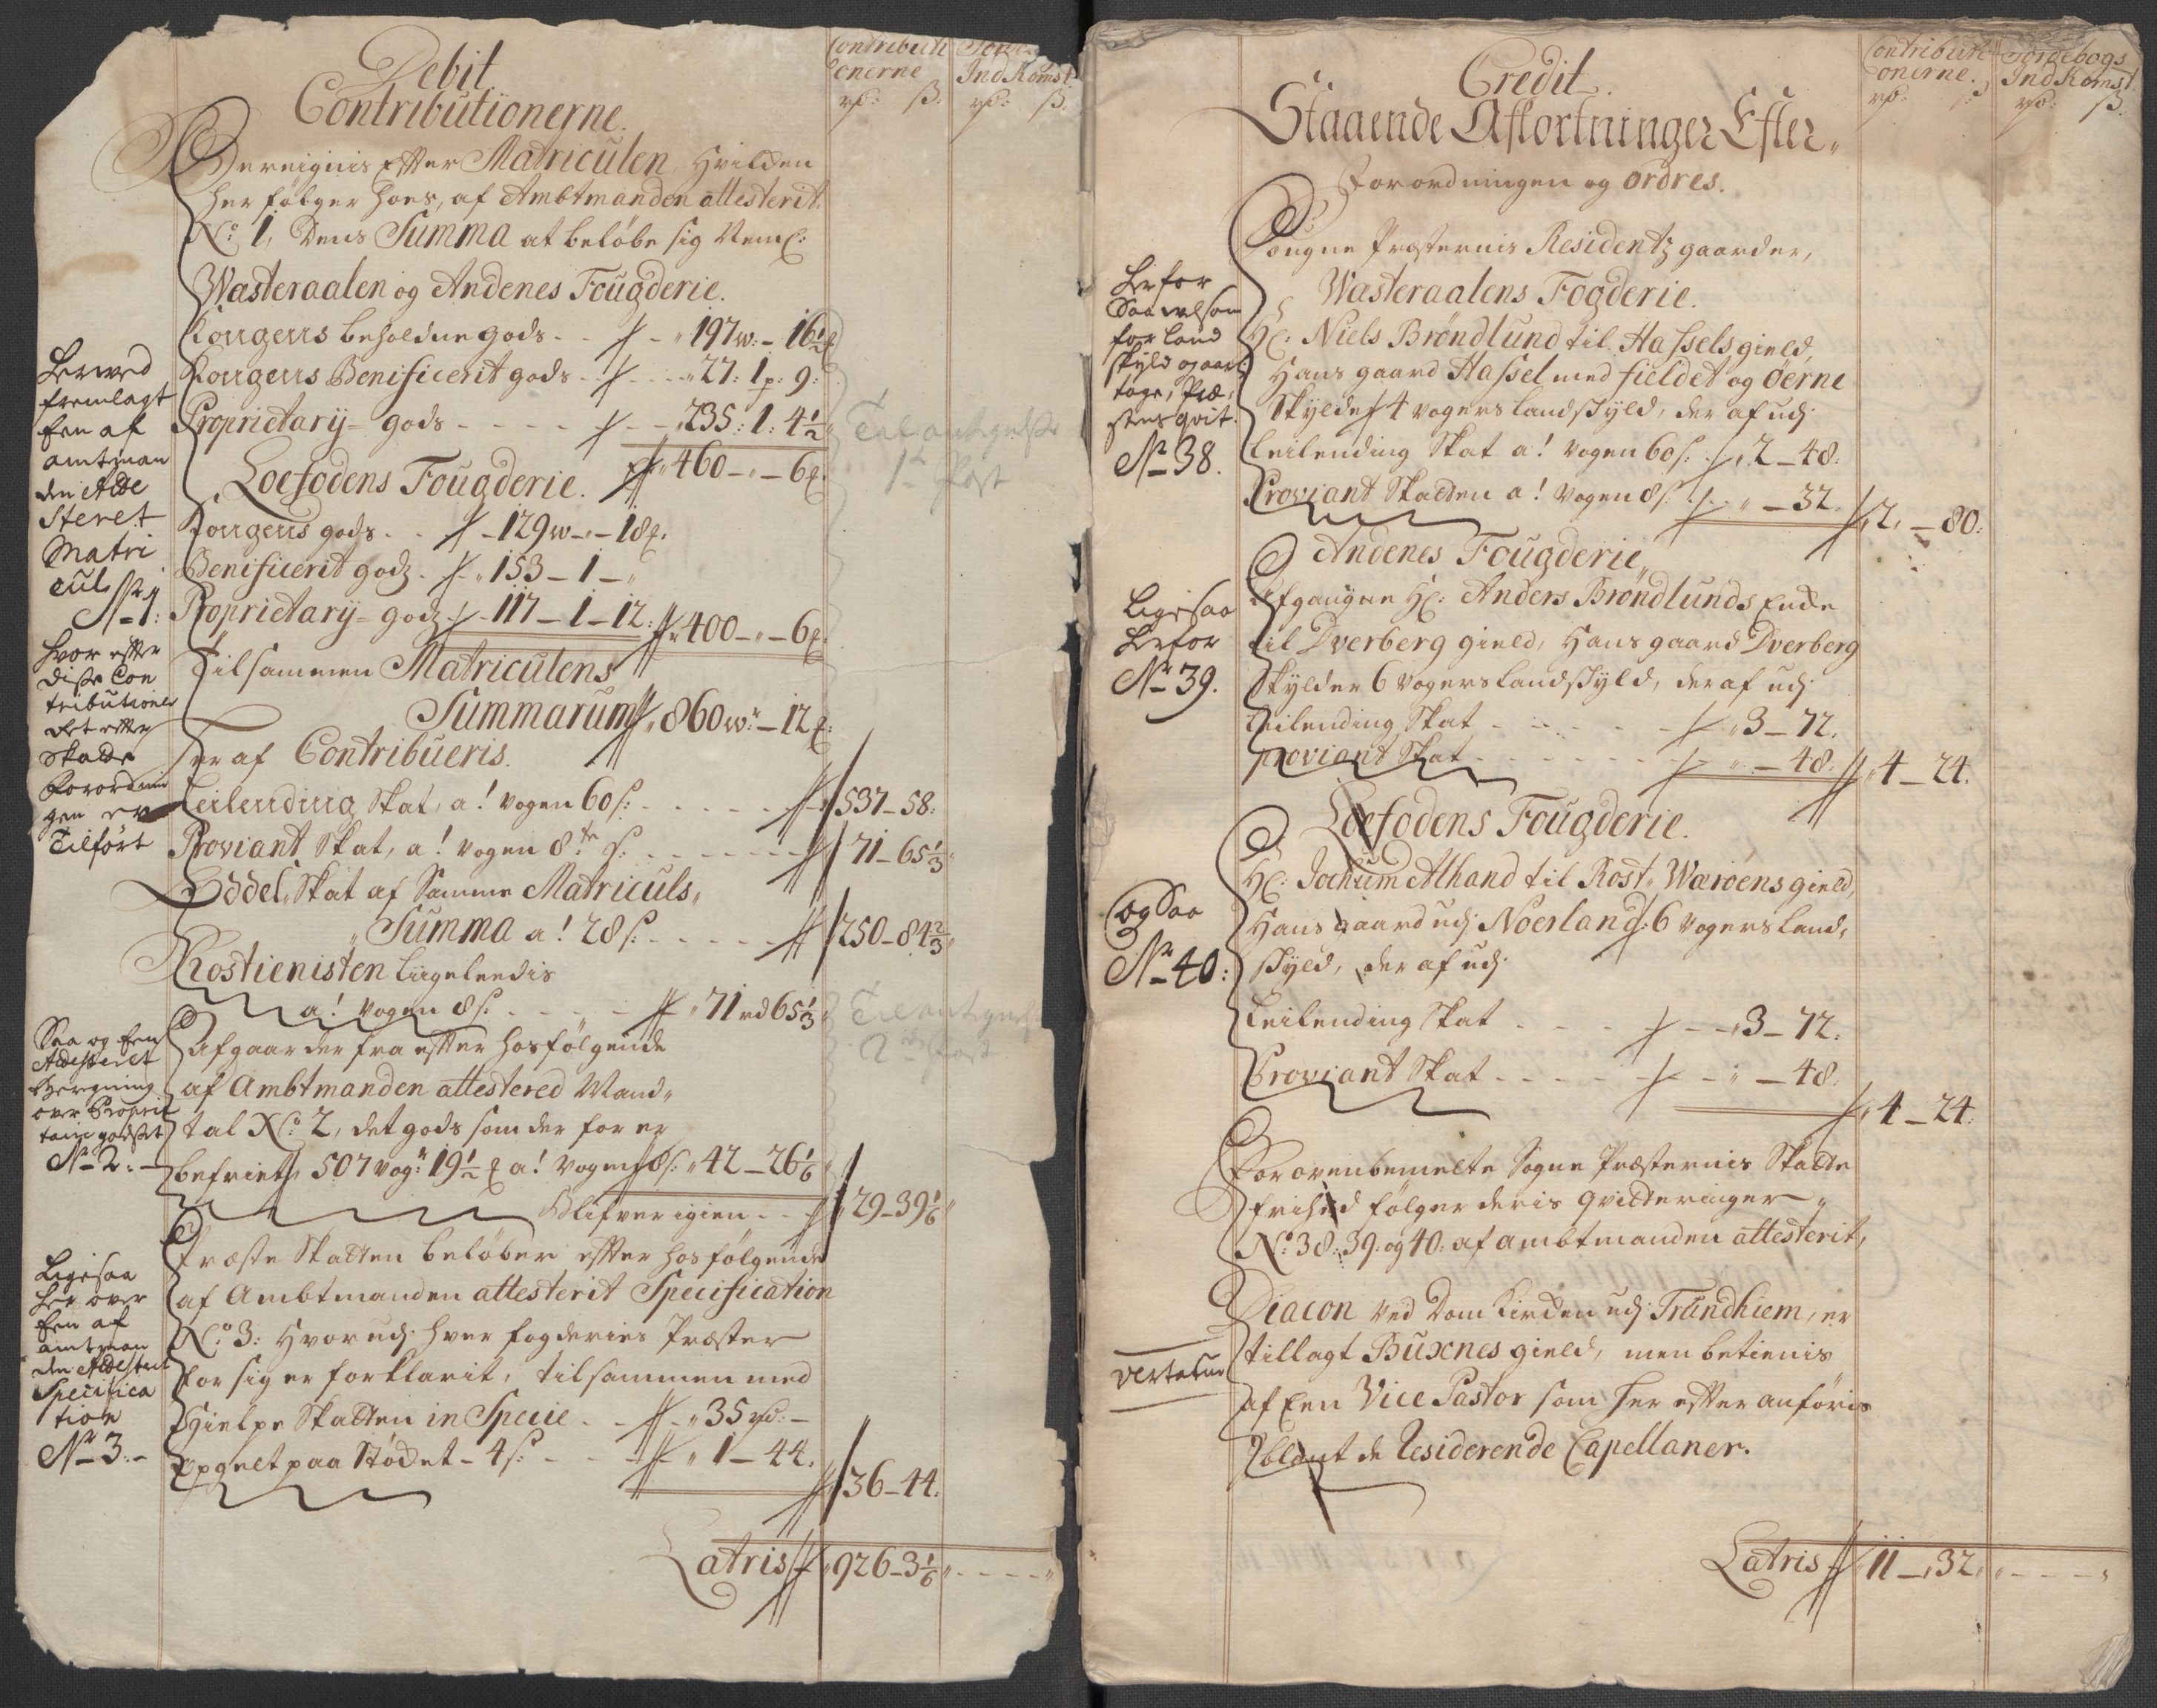 Contributi
onerne
rd: ß.
Jorde
Ind Komst.
rd: ß.
Debit
Contributionerne.
Bereignis Efter Matriculen, Hvilchen
her følger hoes, af Ambtmanden attesterit
No: 1, dens Summa at beløbe sig Neml:
Wasteraalen og Andenes Fougderie.
Kongens beholdne gods - - 197 w: - 16½
Kongens Benificerit gods - - 27: 1 p: 9:
Proprietary- gods - - - - 235: 1: 4½
460 - " - 6
Loefodens Fougderie.
Kongens gods - - 129 w - " - 18
Benificerit godz - 153 - 1 - "
Proprietary- godz - 117 - 1 - 12: 400 - " - 6
Tilsammen Matriculens
Summarum 860 w: - 12
her af Contribueris.
Leilending Skat, a! vogen 60 s: - - - - 537 - 58:
Proviant Skat, a! vogen 8te s: - - - - 71 - 65⅓
Oddel Skat af Samme Matriculs
Summa a! 28 s: - - - - 250 - 84⅔
Rostienisten liigeledis
a! vogen 8 s: - - - - 71 rd 65⅓
Afgaar der fra efter hosfølgende
af Ambtmanden attestered Mand-
tal No: 2, det gods som der for er
befriet, 507 vog: 19½ a! vogen 8 s: 42 - 26⅙
Blifver igien - - 29 - 39⅙
Præste Skatten beløber efter hosfølgende
af Ambtmanden attesterit Specification
No: 3: Hvor udj hver fogderies Præster
for sig er forklarit, tilsammen med
Hielpe Skatten in Specie - - 35 rd: -
Opgelt paa Støchet - 4 s: - - - 1 - 44.
36 - 44.
Latris 926 - 3⅙
Herved
fremlagt
Een af
amtman
den Atte
steret
Matri
cul
No 1:
hvor efter
disse Con
tributioner
det efter
Skatte
Forordnin
gen er
Tilført
Saa og Een
Attesteret
Beregning
over Proprie
tarie godset
No 2: -
Ligesaa
her over
Een af
amtman
den Attesteret
Specifica
tion
No 3. -
Til antegnelse
1te Post
Til antegnelse
2den Post
Contributi
onerne.
rd:
Jordebogs
Ind Komst.
rd: ß.
Credit.
Staaende Afkortninger Efter
Forordningen og Ordres.
Sougne Præsternis Residentz gaarder,
Wasteraalens Fogderie.
Hr: Niels Brøndlund til Hassels gield,
Hans gaard Hassel med fieldet og Øerne
Skylder 4 vogers Landskyld, der af udj
Leilending Skat a! vogen 60 s: 2 - 48.
Proviant Skatten a! vogen 8 s: " - 32. 2 - 80:
Andenes Fougderie
Afgangne Hr: Anders Brøndlunds Enke
til Dverberg gield, Hans gaard Dverberg
Skylder 6 vogers Landskyld, der af udj
Leilending Skat - - - - 3 - 72.
proviant Skat - - - - " - 48. 4 - 24.
Loefodens Fougderie.
Hr: Jochum Alhand til Røst, Wærøens gield,
Hans gaard udj Noerland: 6 vogers Land-
skyld, der af udj
Leilending Skat - - - 3 - 72.
Proviant Skat - - - - " - 48.
4 - 24.
For ovenbemelte Sogne Præsternis Skatte
frihed følger deris qvitteringer
No: 38: 39. og 40. af ambtmanden attesterit,
Diacon ved Dom Kirchen udj Trundhiem, er
tillagt Buxnes gield, men betienis
af Een Vice Pastor som her efter anføris
Iblant de Residerende Capellaner.
Latris 11 - 32
Herfor
Saavelsom
for Land
skyld
tage, Præ
stens qvit.
No 38.
Ligesaa
Herfor
No 39.
og Saa
No 40:
Vertatur